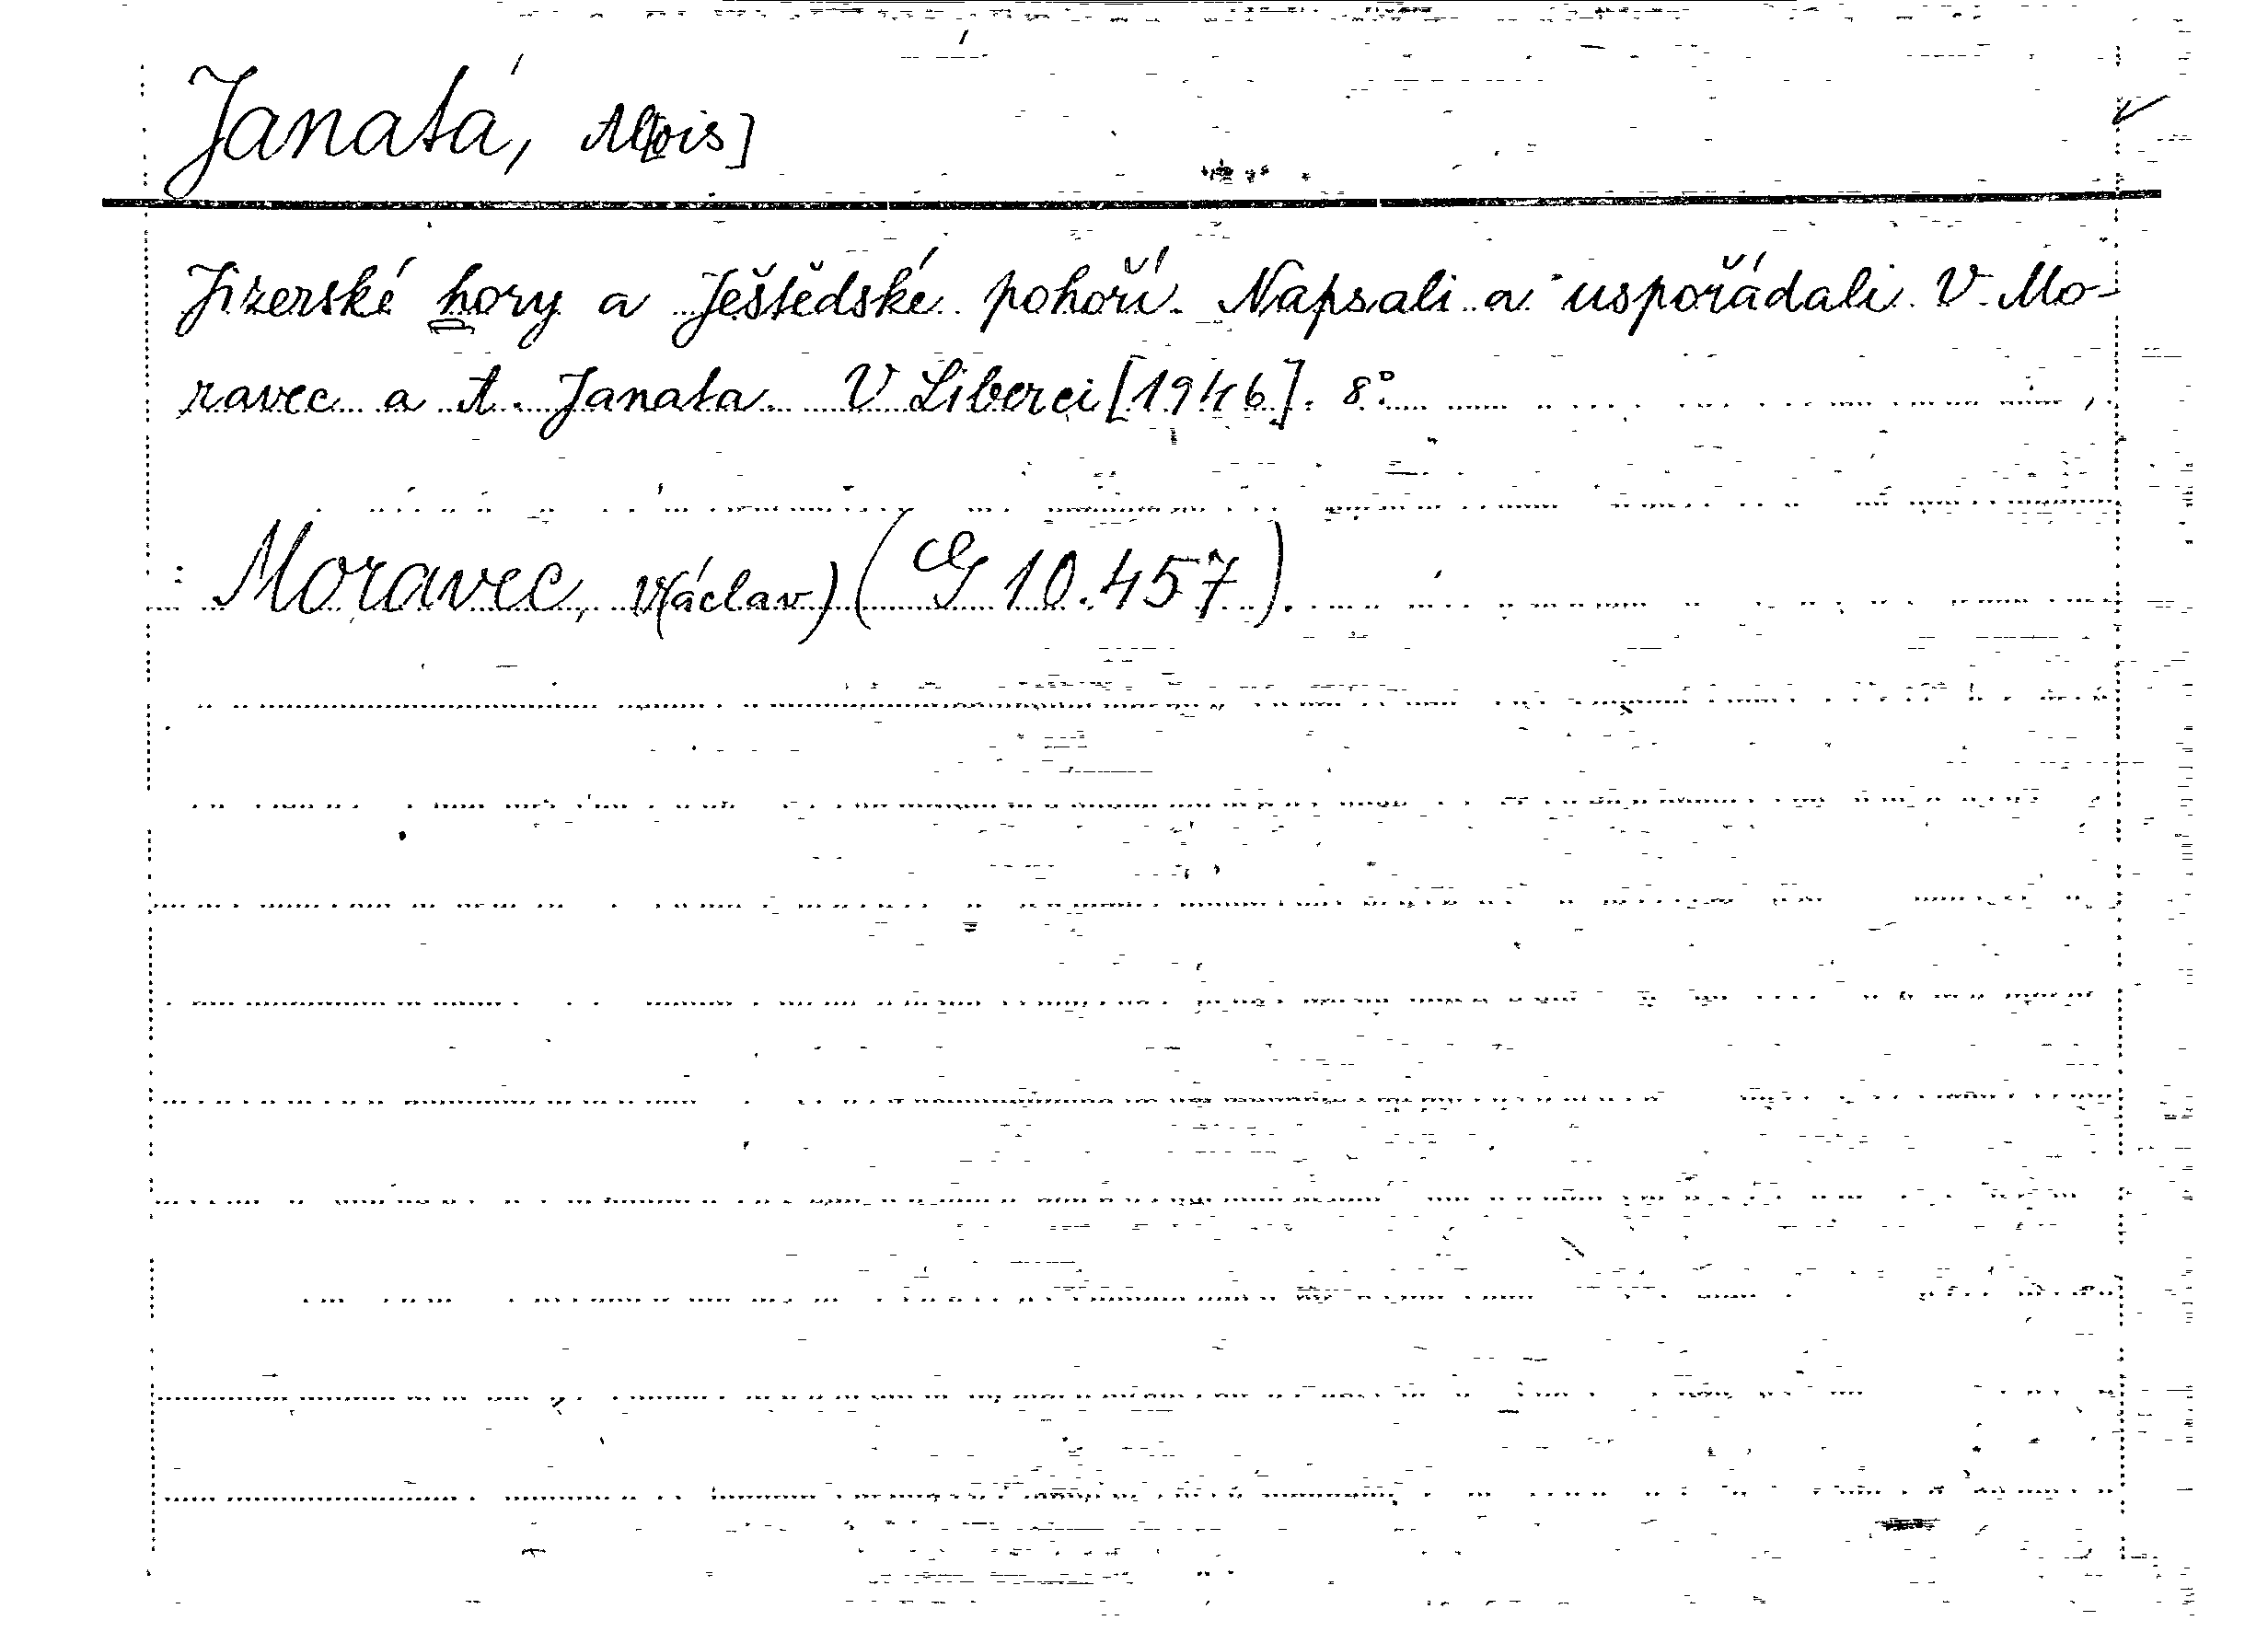 Janatá, Al[ois]
Jizerské hory a Ještědské pohoří. Napsali a uspořádali V. Mo-
ravec a A. Janata. V Liberci [1946]. 8°.
: Moravec, V(áclav) (G 10.457).